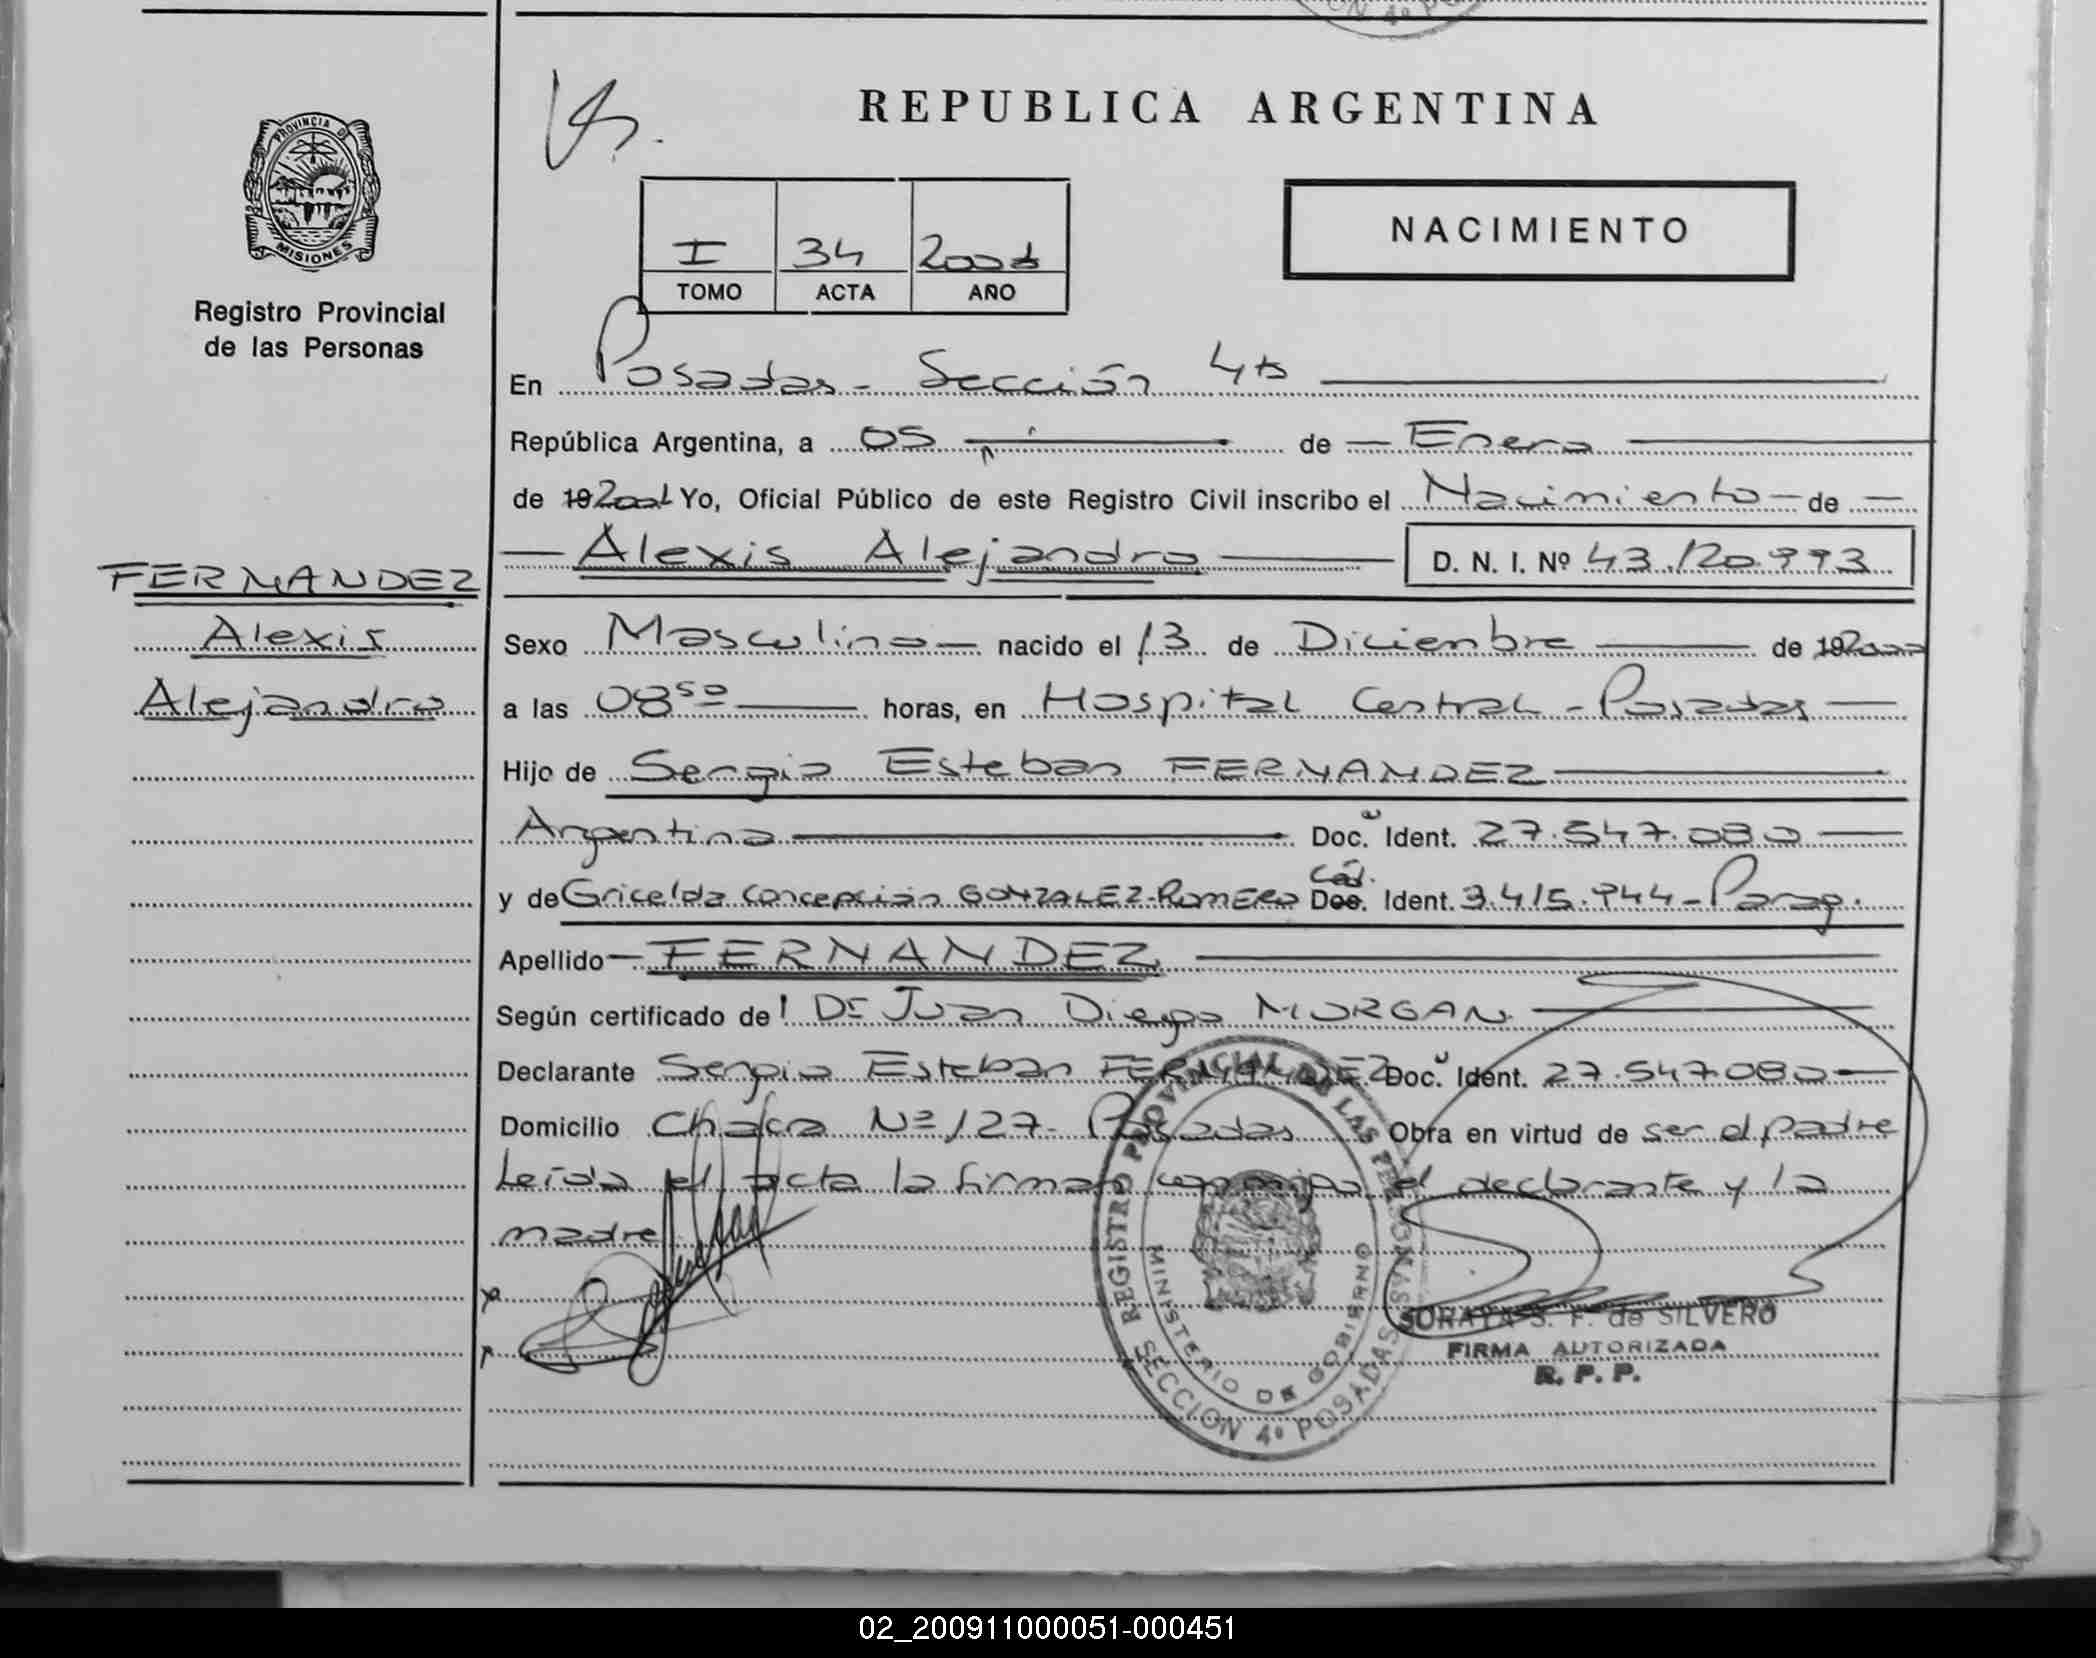 REPUBLICA ARGENTINA
PROVINCIA DE
MISIONES
Registro Provincial
de las Personas
NACIMIENTO
I 34 2001
TOMO ACTA AÑO
En Posadas - Sección 4ta
República Argentina, a 05 de Enero
de 19 2001 Yo, Oficial Público de este Registro Civil inscribo el Nacimiento de
Alexis Alejandro D. N. I. Nº 43.120.993
FERNANDEZ
Alexis
Alejandro
Sexo Masculino nacido el 13 de Diciembre de 19 2000
a las 08 50 horas, en Hospital Central - Posadas
Hijo de Sergio Esteban FERNANDEZ
Argentina Doc. Ident. 27.547.080
y de Gricelda Concepción GONZALEZ-ROMERO Céd. Doc. Ident. 3.415.944 - Parag.
Apellido FERNANDEZ
Según certificado de Dr Juan Diego MORGAN
Declarante Sergio Esteban FERNANDEZ Doc. Ident. 27.547.080
Domicilio Chacra Nº 127 - Posadas Obra en virtud de ser el padre
Leída el acta la firman conmigo el declarante y la
madre
REGISTRO PROVINCIAL DE LAS PERSONAS
MINISTERIO DE GOBIERNO
SECCION 4º POSADAS
SORAYA S. F. de SILVERO
FIRMA AUTORIZADA
R. P. P.
02_200911000051-000451